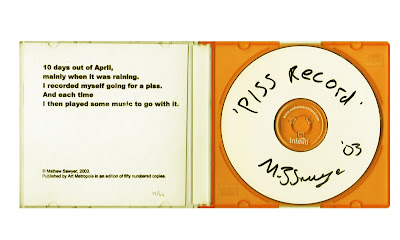 10 days out of April,
mainly when it was raining.
I recorded myself going for a piss.
And each time
I then played some music to go with it.
© Mathew Sawyer, 2003.
Published by Art Metropole in an edition of fifty numbered copies.
'PISS RECORD'
'03